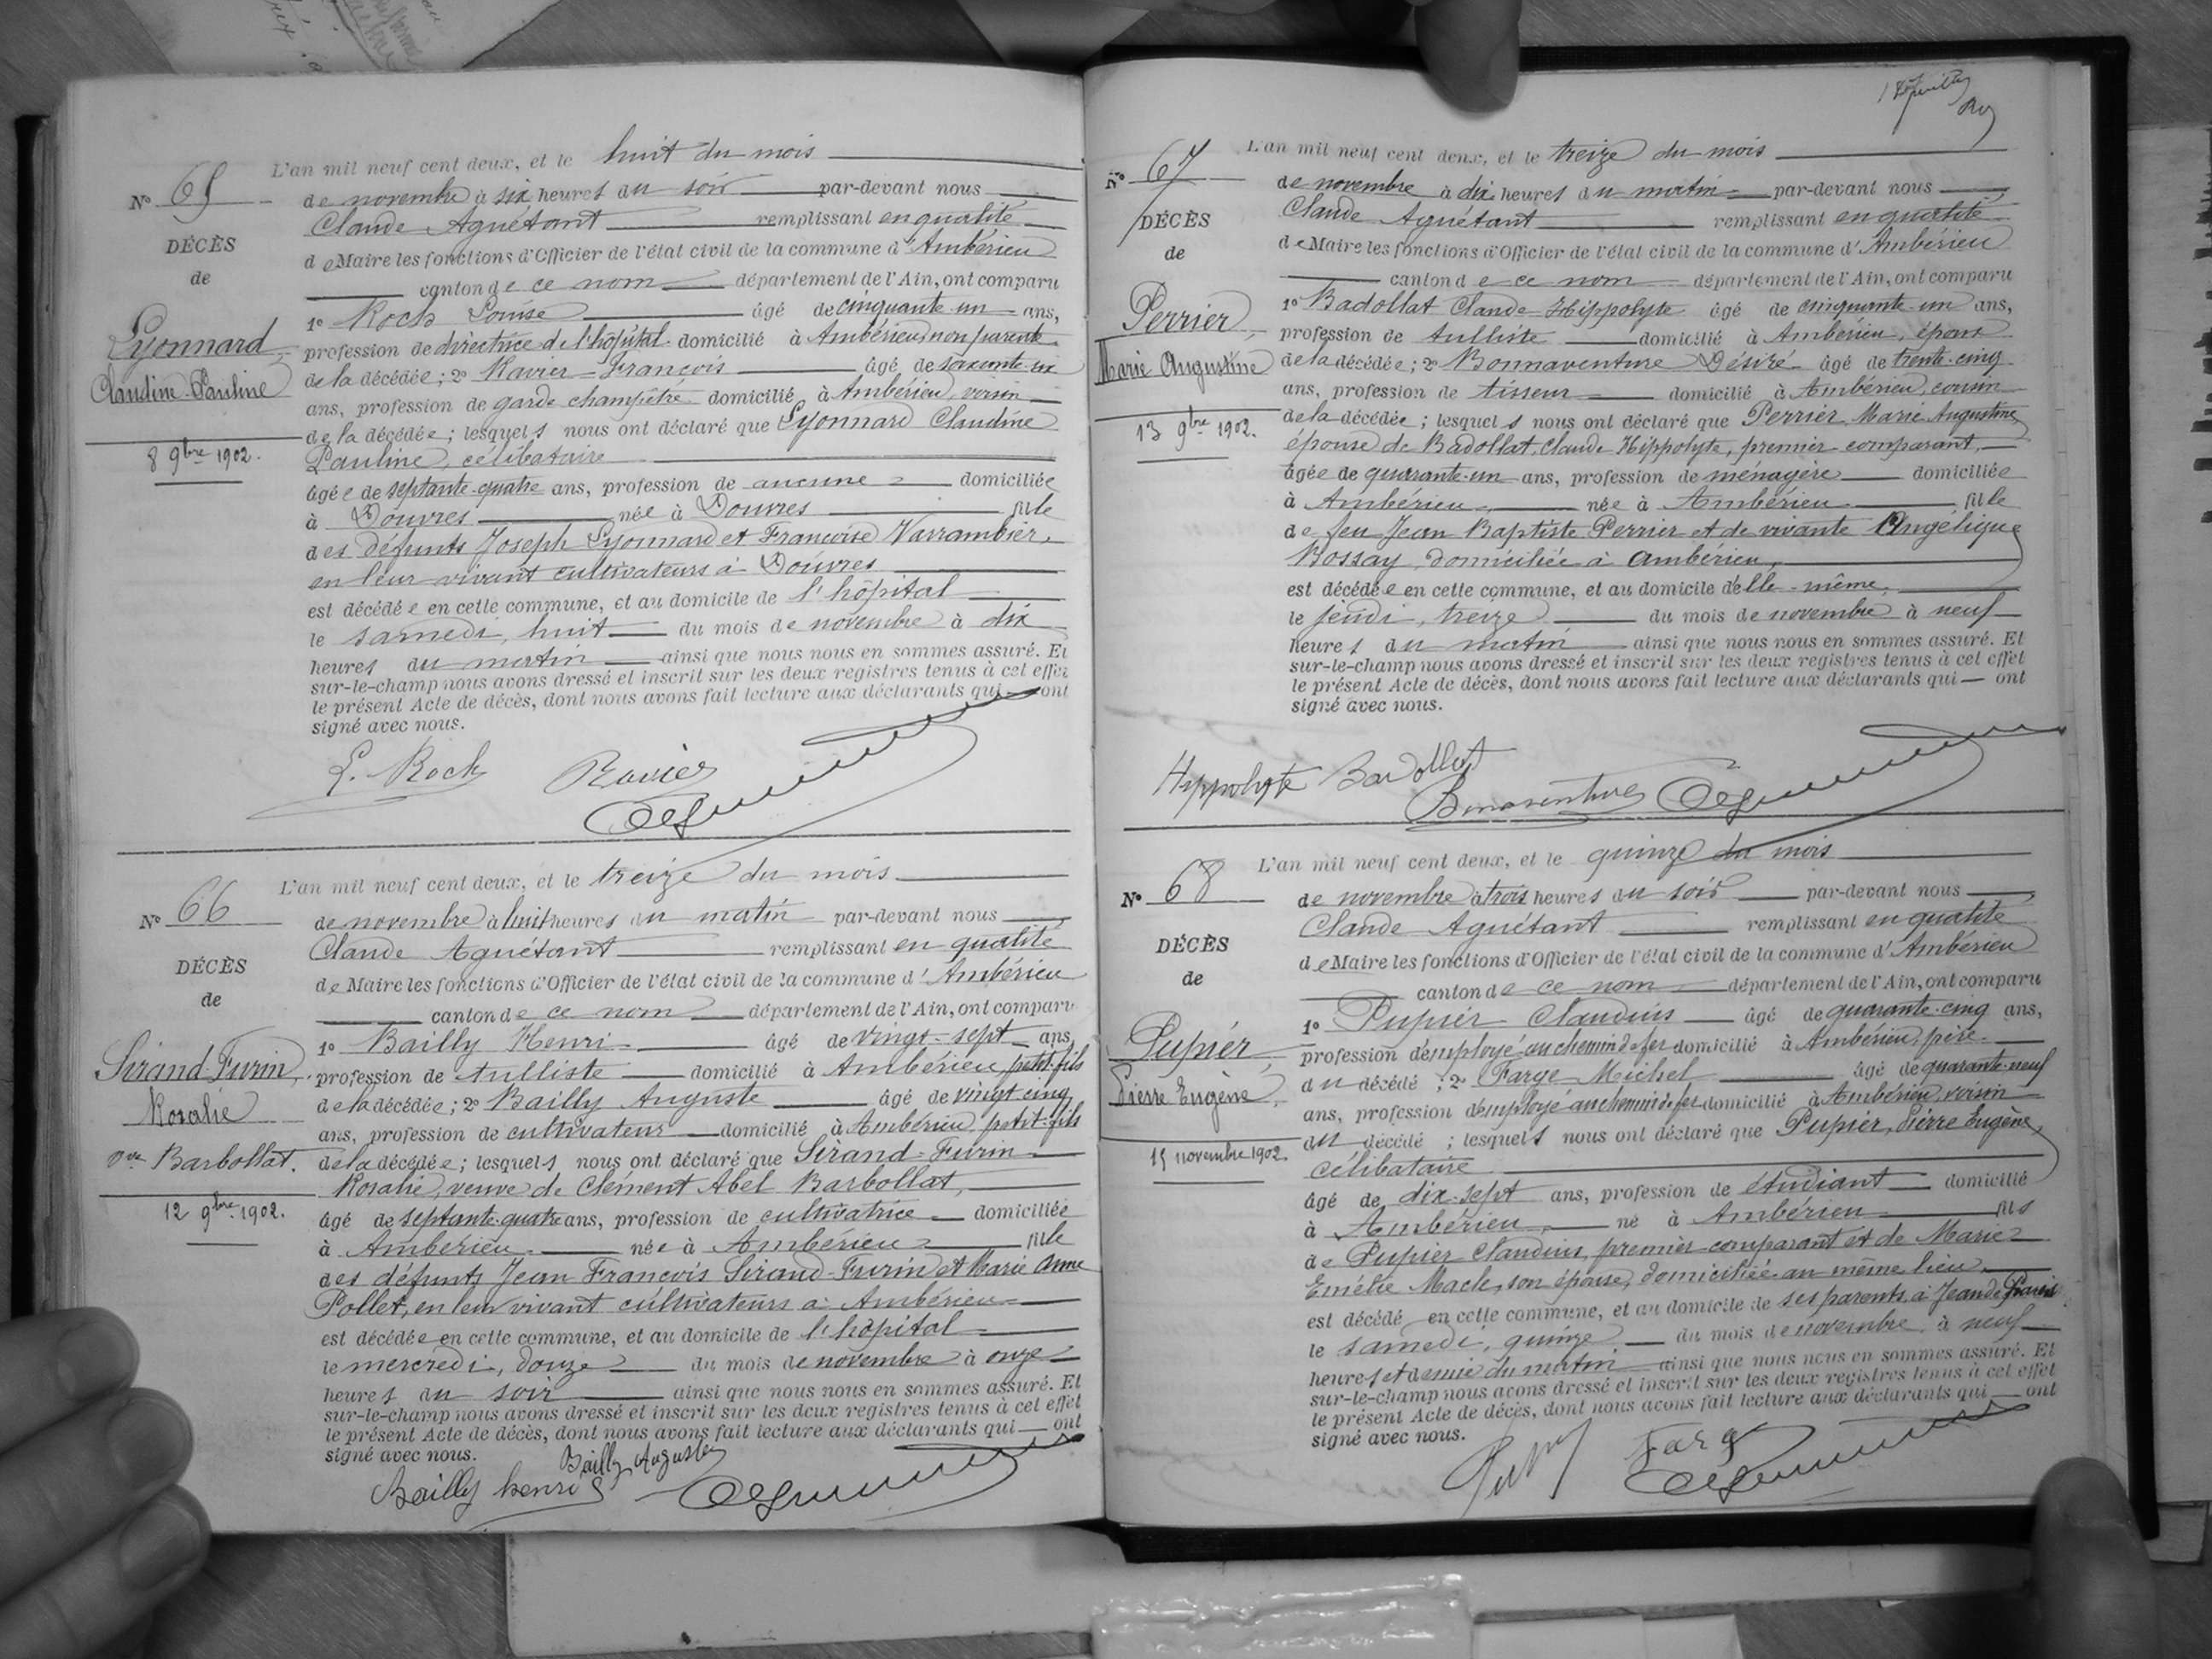 L'an mil neuf cent deux, et le huit du mois
No 65
de novembre à six heures du soir par-devant nous
Claude Aguétant remplissant en qualité
DÉCÈS
de Maire les fonctions d'Officier de l'état civil de la commune d'Ambérieu
de
canton de ce nom département de l'Ain, ont comparu
1o Roch Louise âgé de cinquante-un ans,
Lyonnard
profession de directrice de l'hôpital domicilié à Ambérieu, non parente
Claudine-Pauline
de la décédée; 2o Ravier François âgé de soixante-six
ans, profession de garde champêtre domicilié à Ambérieu, voisin
de la décédée; lesquels nous ont déclaré que Lyonnard Claudine
8 9bre 1902.
Pauline, célibataire
âgée de septante-quatre ans, profession de aucune domiciliée
à Douvres née à Douvres fille
des défunts Joseph Lyonnard et Françoise Varrambier,
en leur vivant cultivateurs à Douvres
est décédée en cette commune, et au domicile de l'hôpital
le samedi, huit du mois de novembre à dix
heures du matin ainsi que nous nous en sommes assuré. Et
sur-le-champ nous avons dressé et inscrit sur les deux registres tenus à cet effet
le présent Acte de décès, dont nous avons fait lecture aux déclarants qui ont
signé avec nous.
L. Roch Ravier
L'an mil neuf cent deux, et le treize du mois
No 66
de novembre à huit heures du matin par-devant nous
Claude Aguétant remplissant en qualité
DÉCÈS
de Maire les fonctions d'Officier de l'état civil de la commune d'Ambérieu
de
canton de ce nom département de l'Ain, ont comparu
1o Bailly Henri âgé de vingt-sept ans,
Sirand-Furin,
profession de tulliste domicilié à Ambérieu, petit-fils
Rosalie
de la décédée; 2o Bailly Auguste âgé de vingt cinq
ans, profession de cultivateur domicilié à Ambérieu, petit-fils
vve Barbollat.
de la décédée; lesquels nous ont déclaré que Sirand-Furin
Rosalie, veuve de Clément Abel Barbollat,
12 9bre 1902.
âgé de septante-quatre ans, profession de cultivatrice domiciliée
à Ambérieu née à Ambérieu fille
des défunts Jean François Sirand-Furin et Marie Anne
Pollet, en leur vivant cultivateurs à Ambérieu
est décédée en cette commune, et au domicile de l'hôpital
le mercredi, douze du mois de novembre à onze
heures du soir ainsi que nous nous en sommes assuré. Et
sur-le-champ nous avons dressé et inscrit sur les deux registres tenus à cet effet
le présent Acte de décès, dont nous avons fait lecture aux déclarants qui ont
signé avec nous.
Bailly Auguste
Bailly henri
L'an mil neuf cent deux, et le treize du mois
No 67
de novembre à dix heures du matin par-devant nous
Claude Aguétant remplissant en qualité
DÉCÈS
de Maire les fonctions d'Officier de l'état civil de la commune d'Ambérieu
de
canton de ce nom département de l'Ain, ont comparu
1o Badollat Claude-Hippolyte âgé de cinquante-un ans,
Perrier,
profession de tulliste domicilié à Ambérieu, époux
Marie Augustine
de la décédée; 2o Bonnaventure Désiré âgé de trente-cinq
ans, profession de tisseur domicilié à Ambérieu, cousin
13 9bre 1902.
de la décédée; lesquels nous ont déclaré que Perrier Marie Augustine,
épouse de Badollat, Claude Hippolyte, premier comparant,
âgée de quarante-un ans, profession de ménagère domiciliée
à Ambérieu née à Ambérieu fille
de feu Jean Baptiste Perrier et de vivante Angélique
Bossay, domiciliée à Ambérieu,
est décédée en cette commune, et au domicile d'elle-même,
le jeudi, treize du mois de novembre à neuf
heures du matin ainsi que nous nous en sommes assuré. Et
sur-le-champ nous avons dressé et inscrit sur les deux registres tenus à cet effet
le présent Acte de décès, dont nous avons fait lecture aux déclarants qui ont
signé avec nous.
Hyppolyte Badollat
Bonaventure
L'an mil neuf cent deux, et le quinze du mois
No 68
de novembre à trois heures du soir par-devant nous
Claude Aguétant remplissant en qualité
DÉCÈS
de Maire les fonctions d'Officier de l'état civil de la commune d'Ambérieu
de
canton de ce nom département de l'Ain, ont comparu
1o Pupier Claudius âgé de quarante-cinq ans,
Pupier,
profession d'employé au chemin de fer domicilié à Ambérieu, père
Pierre Eugène,
du décédé; 2o Farge Michel âgé de quarante-neuf
ans, profession d'employé au chemin de fer domicilié à Ambérieu, voisin
du décédé; lesquels nous ont déclaré que Pupier, Pierre Eugène,
15 novembre 1902
célibataire
âgé de dix-sept ans, profession de étudiant domicilié
à Ambérieu, né à Ambérieu fils
de Pupier Claudius, premier comparant et de Marie
Emélie Mack, son épouse, domiciliée au même lieu
est décédé en cette commune, et au domicile de ses parents, à Jean de Paris
le samedi, quinze du mois de novembre à neuf
heures et demie du matin ainsi que nous nous en sommes assuré. Et
sur-le-champ nous avons dressé et inscrit sur les deux registres tenus à cet effet
le présent Acte de décès, dont nous avons fait lecture aux déclarants qui ont
signé avec nous.
Farge